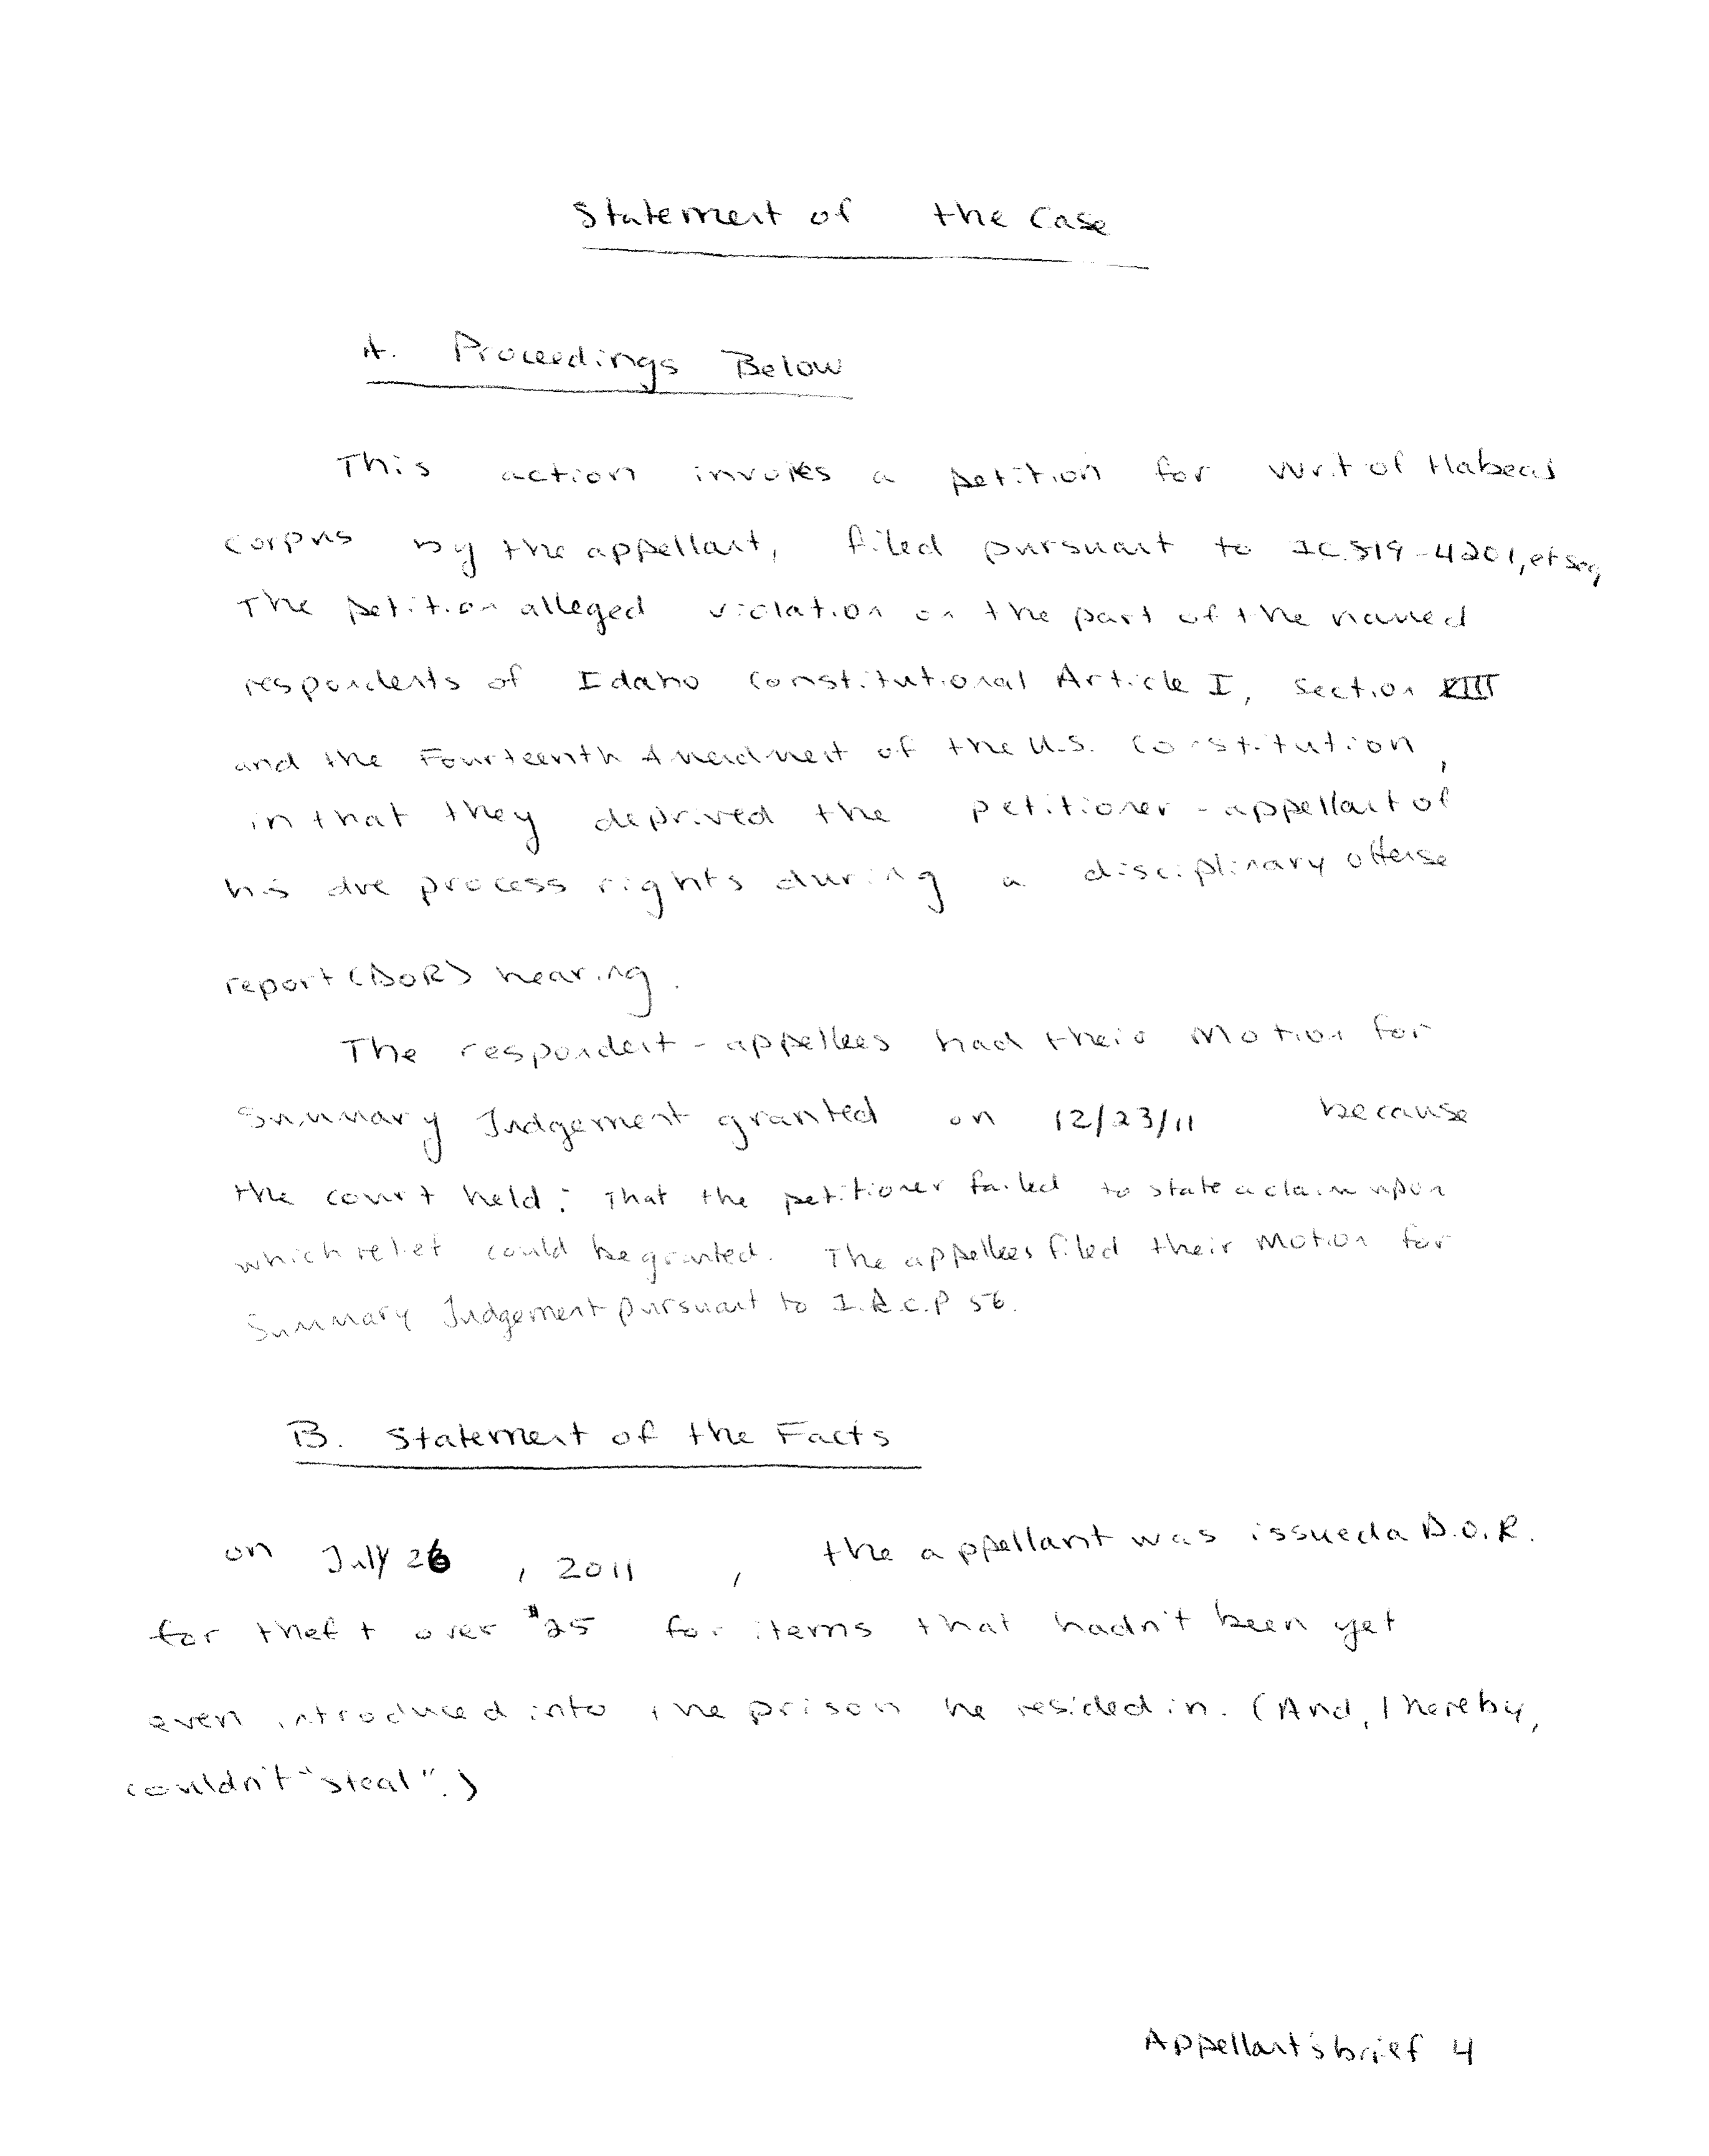 Statement of the Case
A. Proceedings Below
This action involes a petition for Writ of Habeas
corpus by the appellant, filed pursuant to IC §19-4201, et seq
The petition alleged violation on the part of the named
respondents of Idaho Constitutional Article I, Section XIII
and the Fourteenth Amendment of the U.S. Constitution,
in that they deprived the petitioner-appellant of
his due process rights during a disciplinary offense
report (DOR) hearing.
The respondent-appellees had their Motion for
Summary Judgement granted on 12/23/11 because
the court held: That the petitioner failed to state a claim upon
which relief could be granted. The appellees filed their Motion for
Summary Judgement pursuant to I.R.C.P 56.
B. Statement of the Facts
on July 26, 2011, the appellant was issued a D.O.R.
for theft over $25 for items that hadn't been yet
even introduced into the prison he resided in. (And, thereby,
couldn't "steal".)
Appellant's brief 4